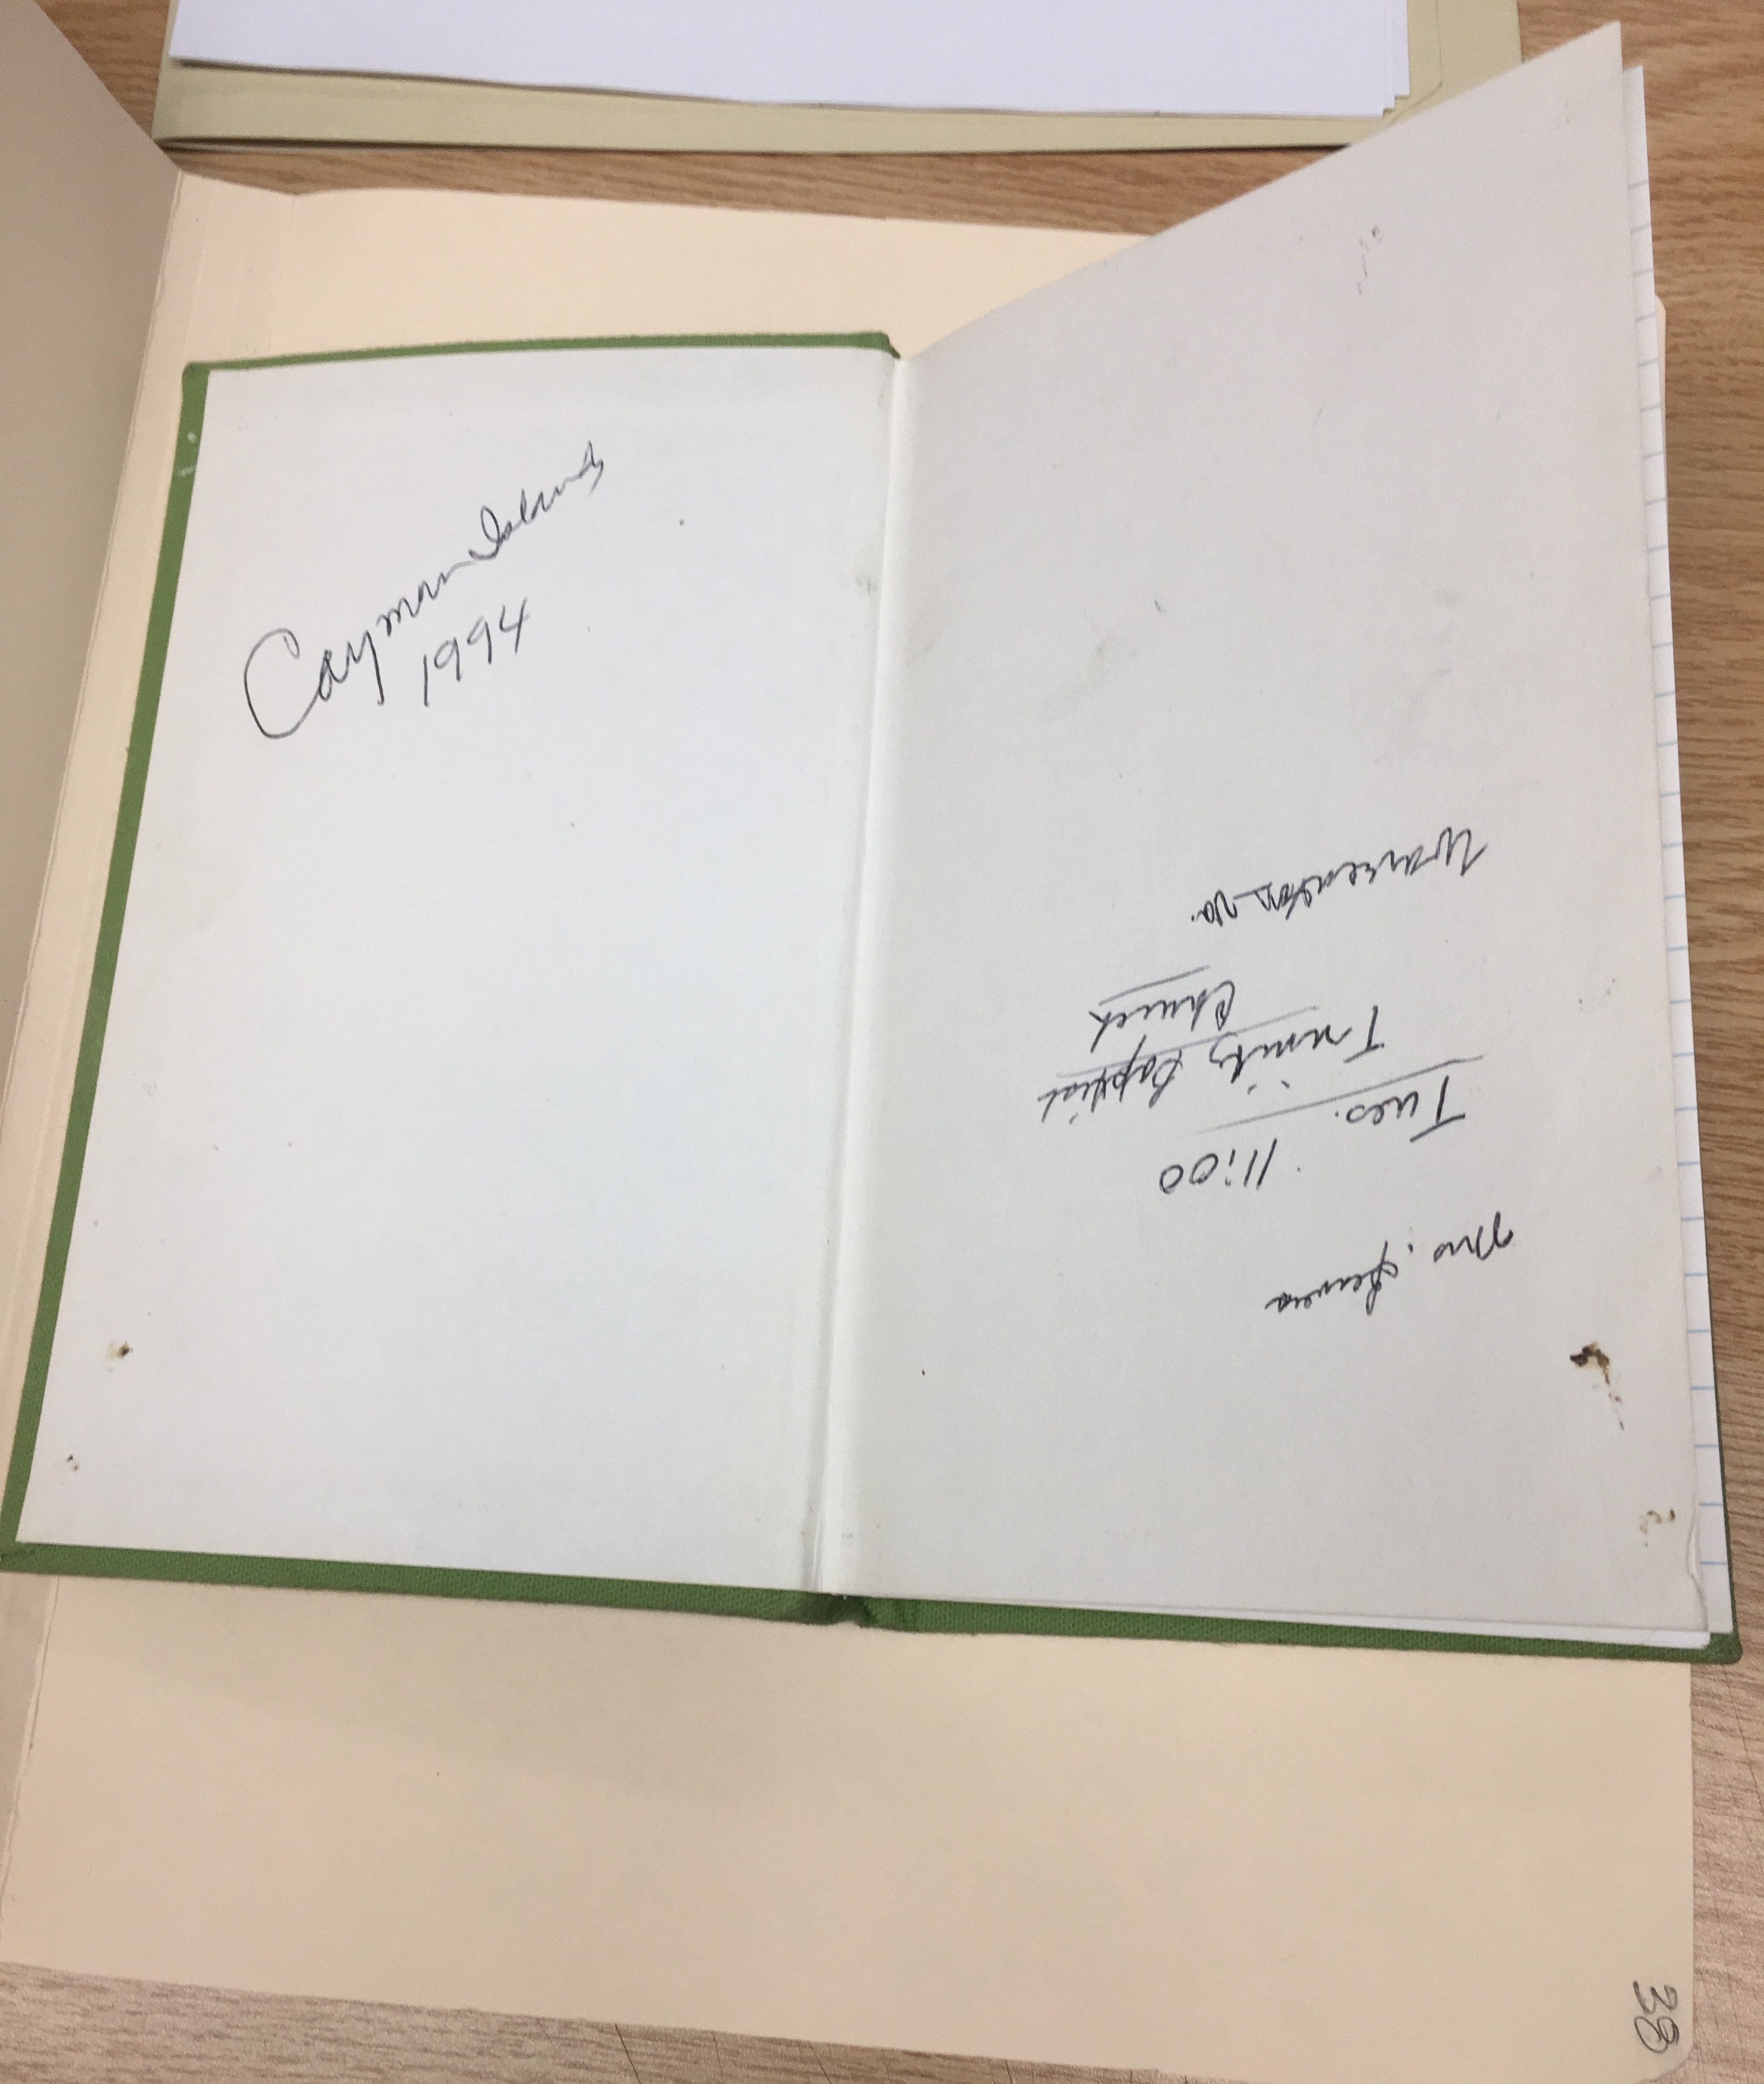 Cayman Islands
1994
Mrs.
Tues. 11:00
Trinity Baptist
Church
Warrenton, Va.
38